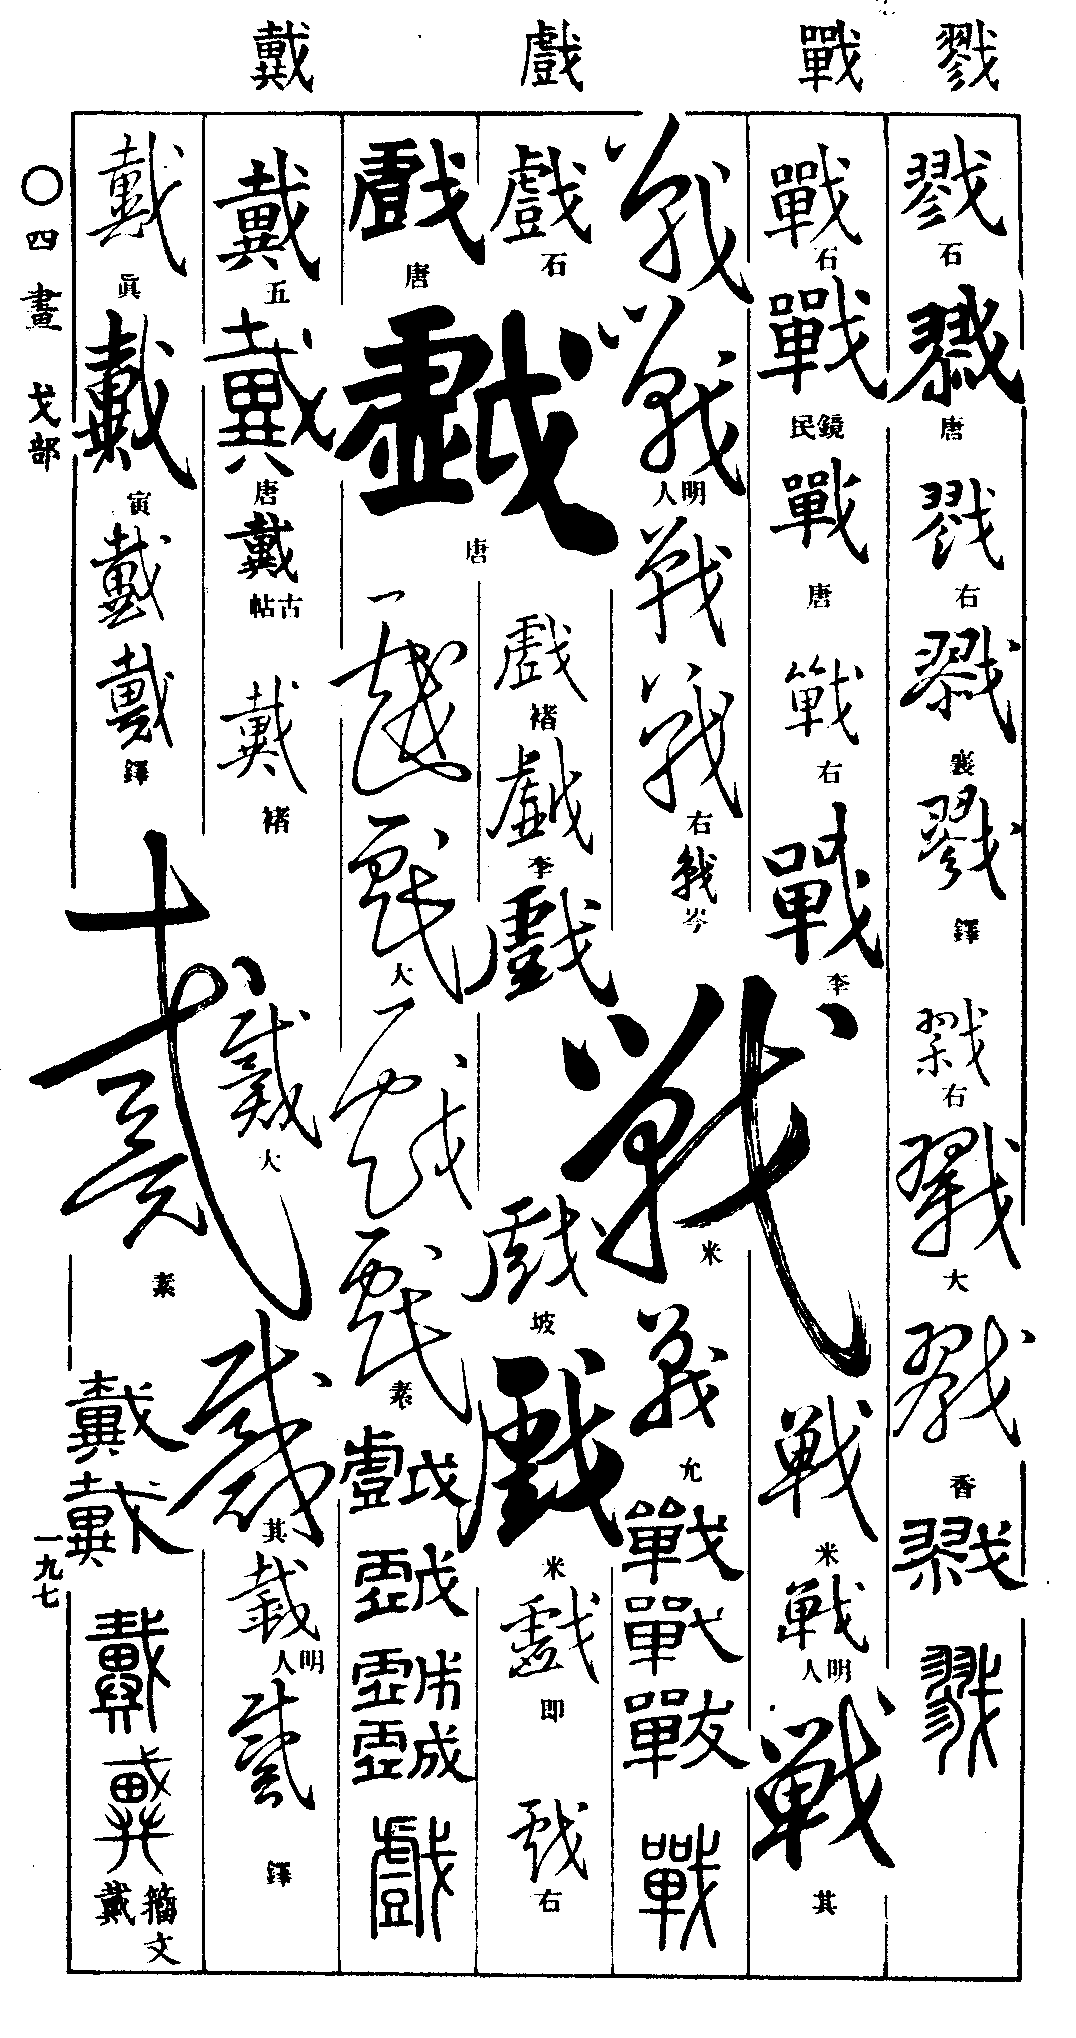 戮
戰
戲
戴
戮 石
戮 唐
戮 右
戮 襄
戮 鐸
戮 右
戮 大
戮 香
戮
戮
戰 石
戰 民鏡
戰 唐
戰 右
戰 李
戰 米
戰 明人
戰 其
戰
戰 明人
戰
戰 右
戰 岑
戰 米
戰 允
戰
戰
戰
戰
戲 石
戲 唐
戲 褚
戲 李
戲
戲 坡
戲 米
戲 即
戲 右
戲 唐
戲
戲 大
戲
戲 素
戲
戲
戲
戲
戲
戴 五
戴 唐
戴 古帖
戴 褚
戴 大
戴 其
戴 明人
戴 鐸
戴 眞
戴 寅
戴
戴 鐸
戴 素
戴
戴
戴
戴 籀文戴
〇四畫 戈部
一九七